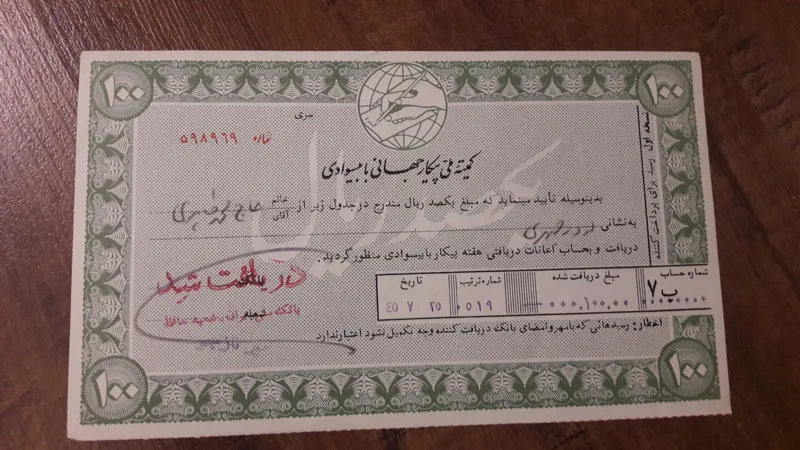 ۱۰۰
۱۰۰
سری
شماره ۵۹۸۹۶۹
کمیتهٔ ملی پیکار جهانی با بیسوادی
یکصد ریال
نسخه اول رسید برای پرداخت کننده
بدینوسیله تأیید مینماید که مبلغ یکصد ریال مندرج در جدول زیر از خانم آقای حاج
به نشانی
دریافت و بحساب اعانات دریافتی هفته پیکار با بیسوادی منظور گردید.
دریافت شد
بانک
شعبه
تاریخ
شماره ترتیب
مبلغ دریافت شده
شماره حساب
۴۵ ۷ ۲۵
۰۵۱۹
۰۰۰,۱۰۰.۰۰
ب ۷
اخطار: رسیدهائی که با مهر و امضای بانک دریافت کننده وجه تکمیل نشود اعتبار ندارد
۱۰۰
۱۰۰